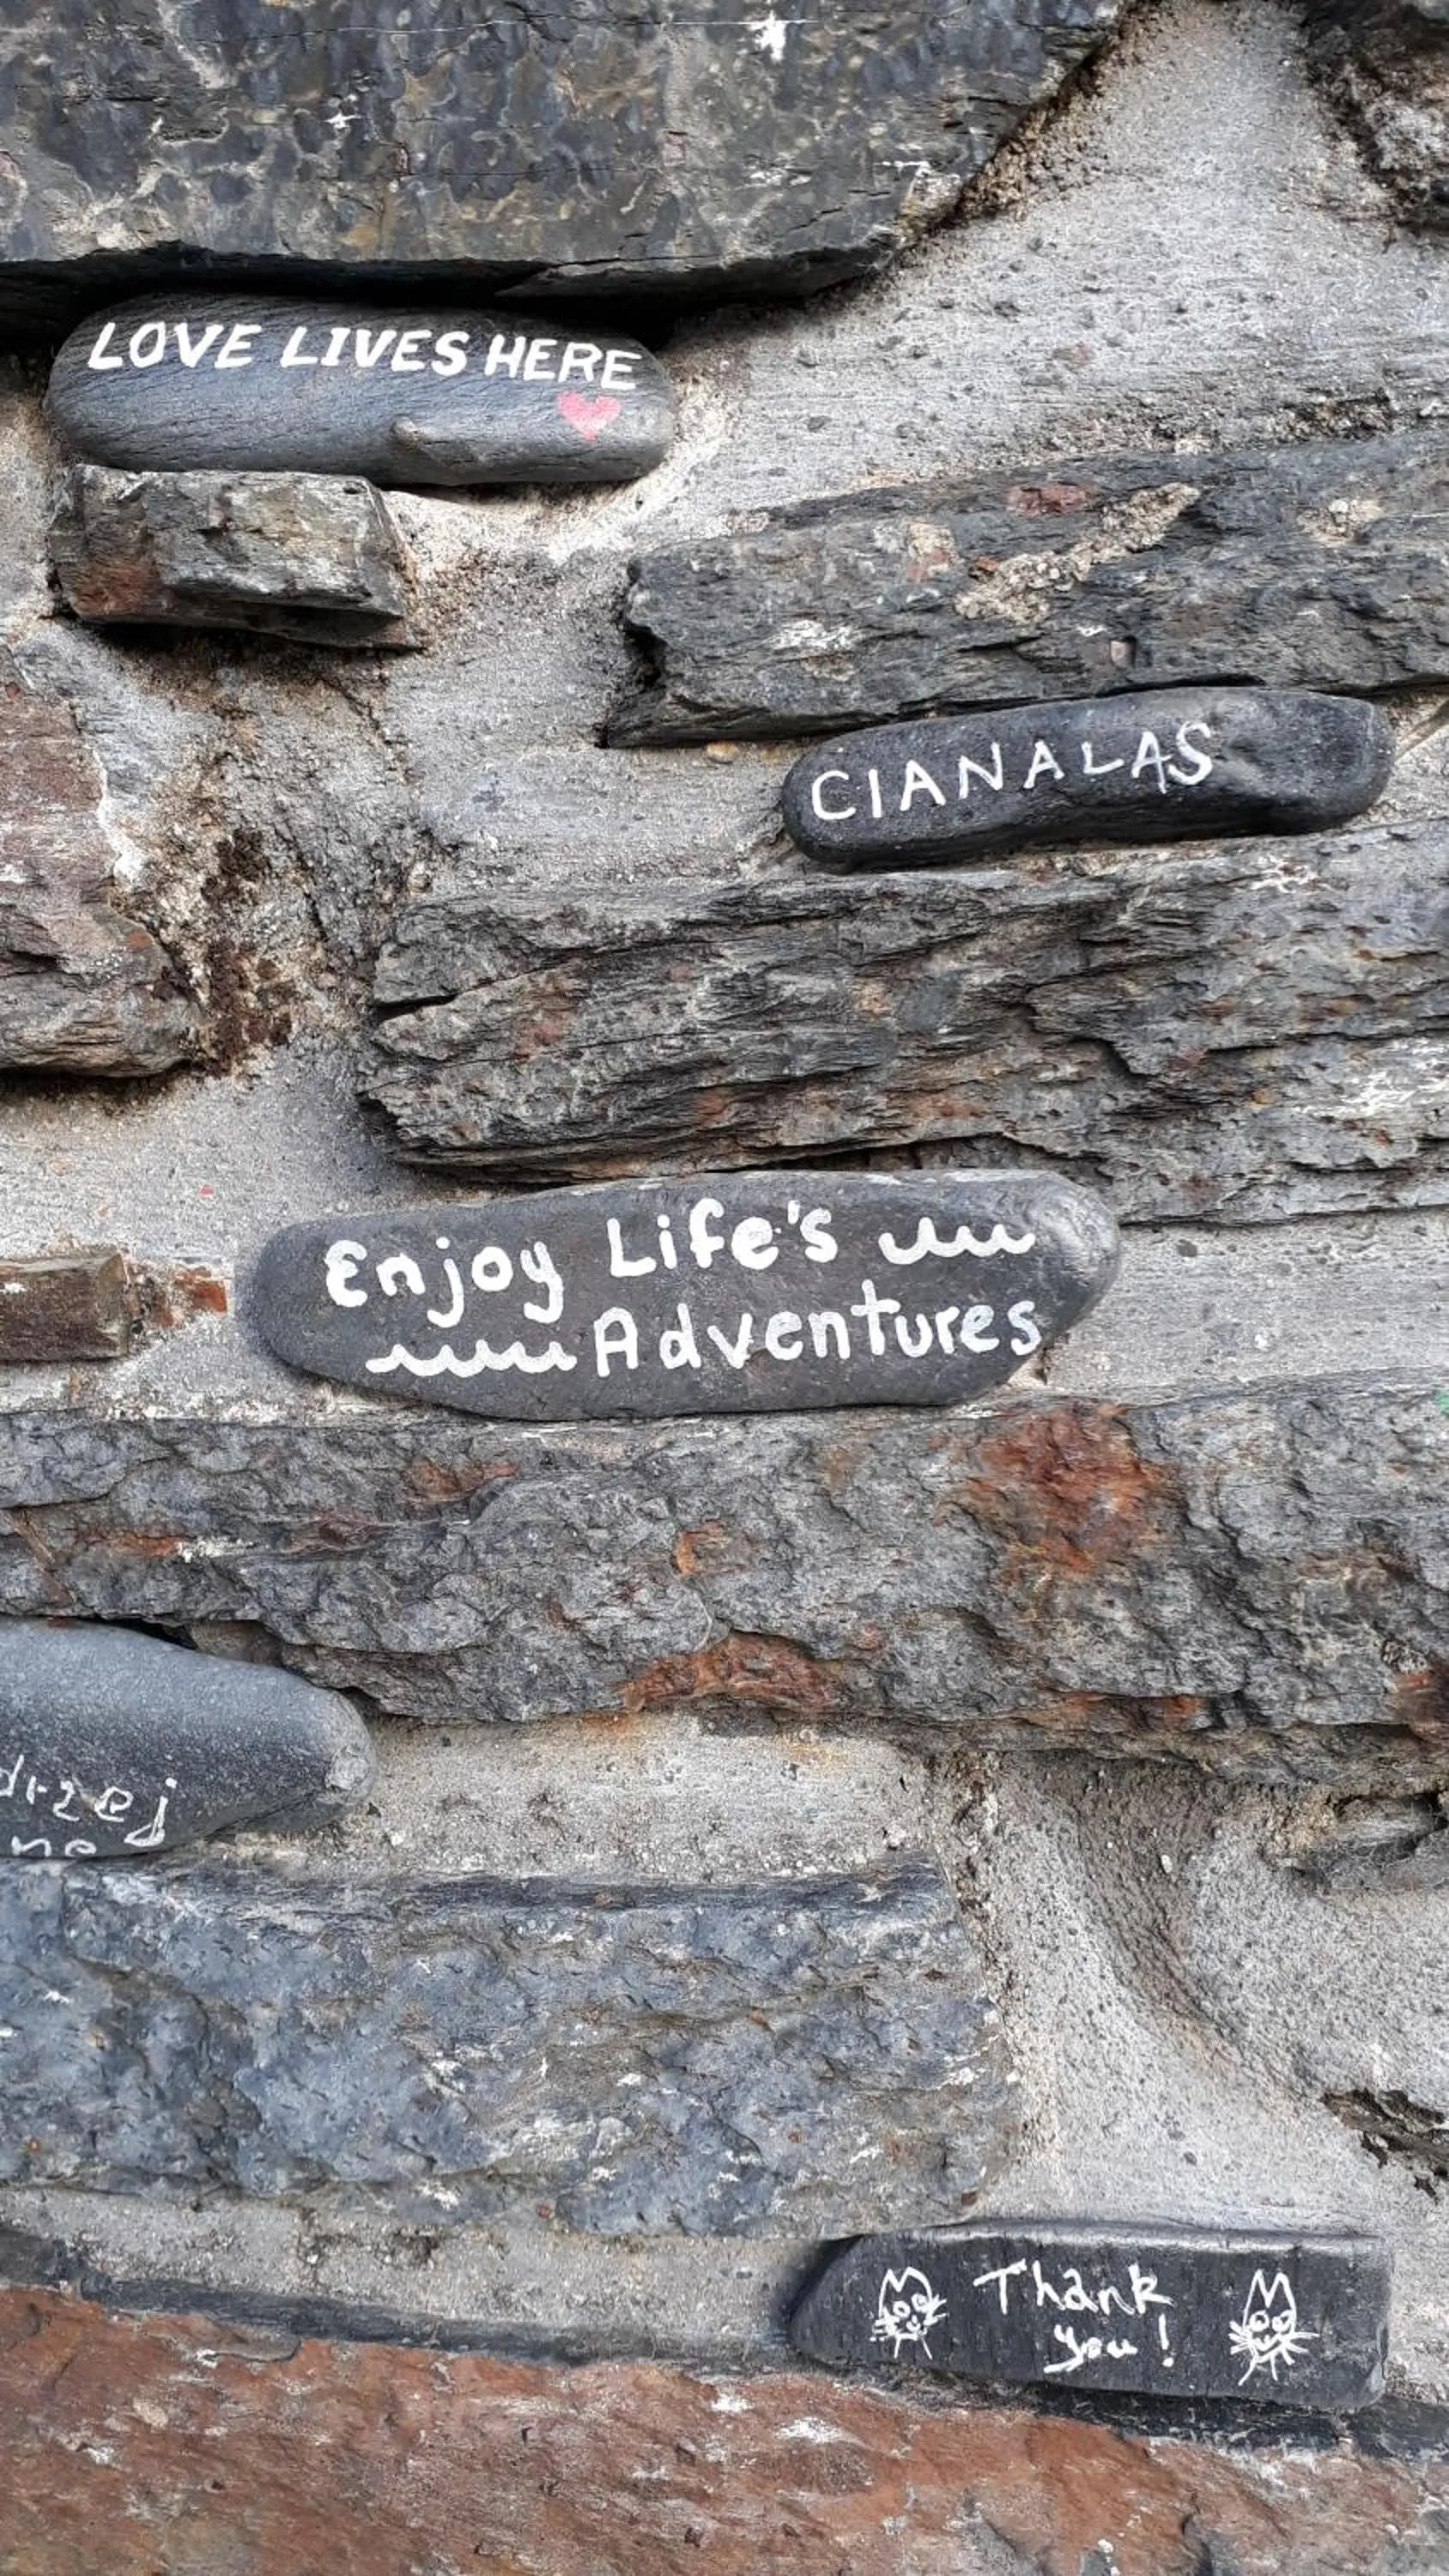 LOVE LIVES HERE
CIANALAS
Enjoy Life's
Adventures
drzej
ne
Thank
you!